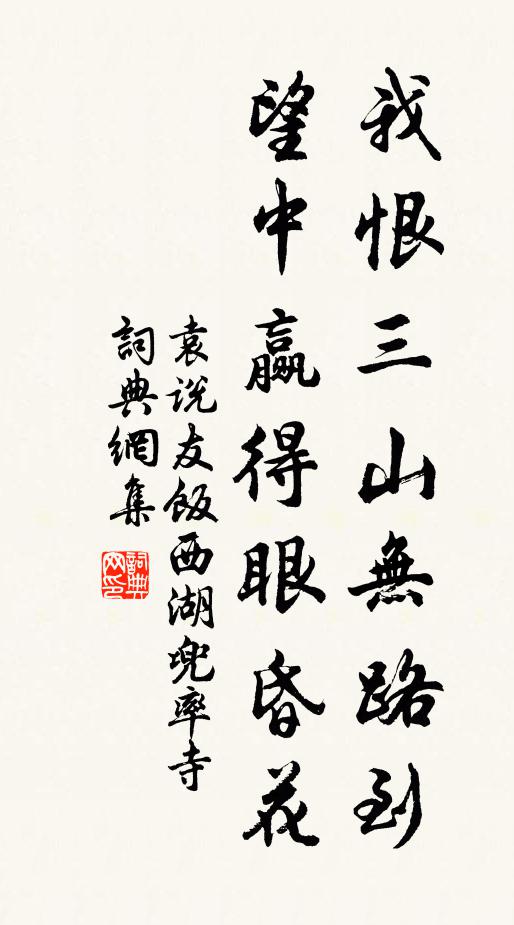 我恨三山無路到
望中贏得眼昏花
袁說友飯西湖兜率寺
詞典網集
詞典網印